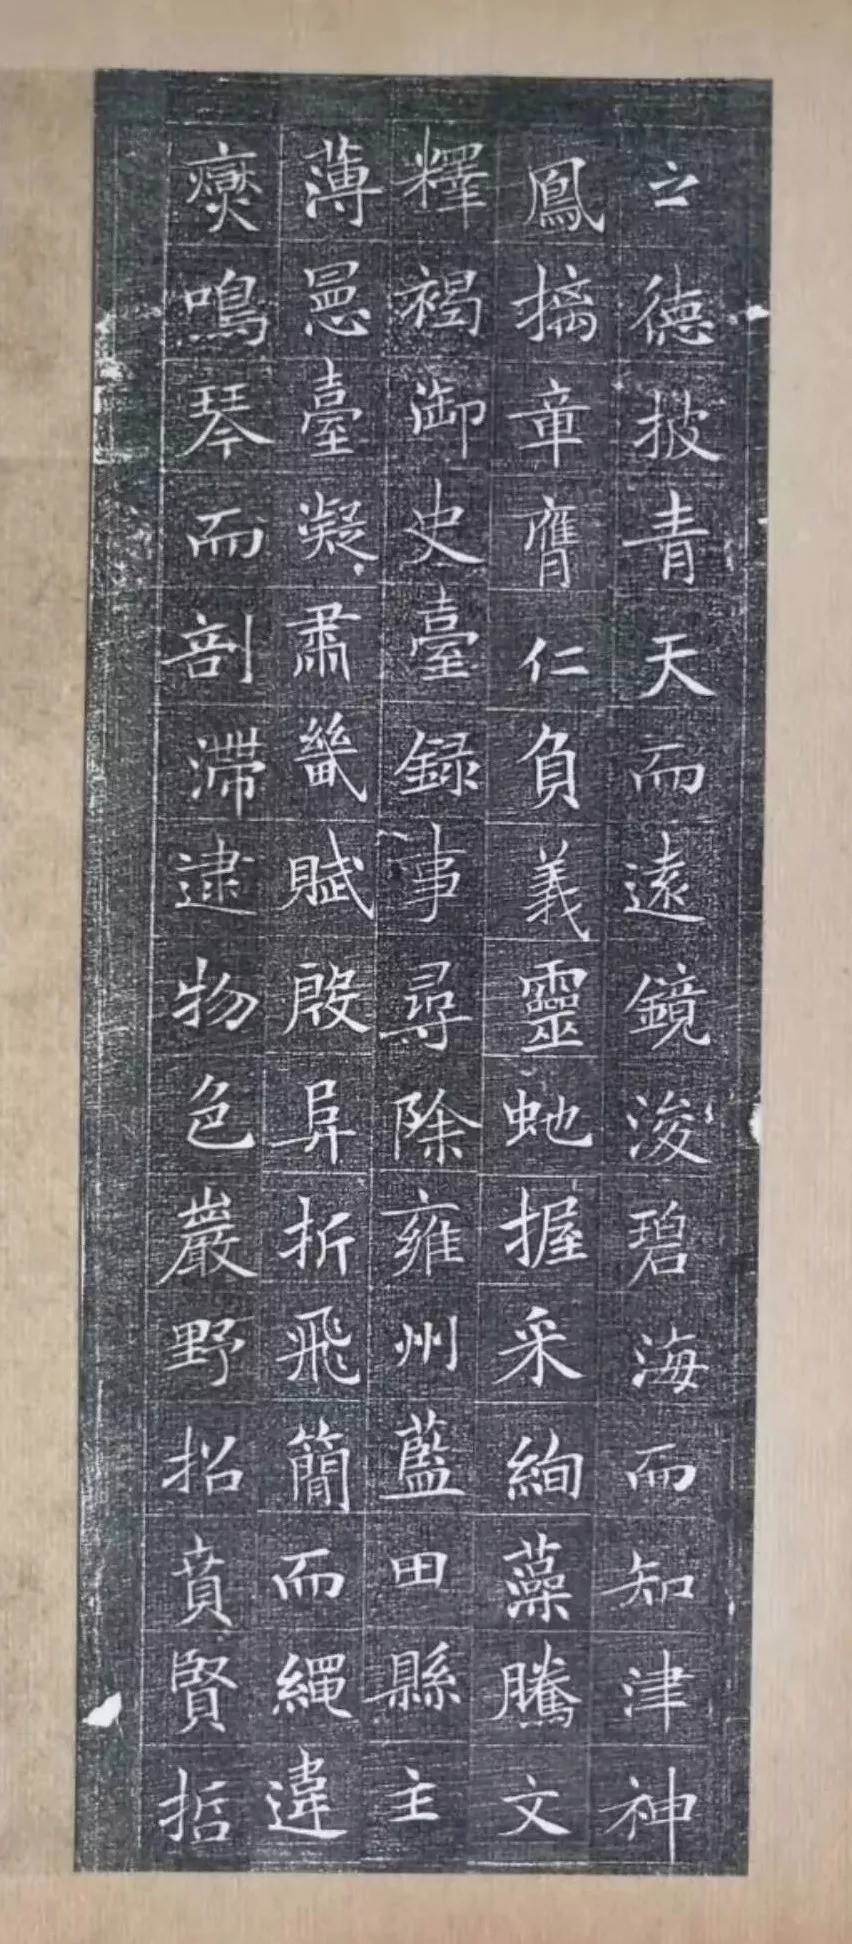 之德披青天而遠鏡浚碧海而知津神
鳳摛章膺仁負義靈虵握采絢藻騰文
釋褐御史臺録事尋除雍州藍田縣主
薄罳臺凝肅畿賦殷阜折飛簡而繩違
鳴琴而剖滯逮物色巖野招賁賢哲